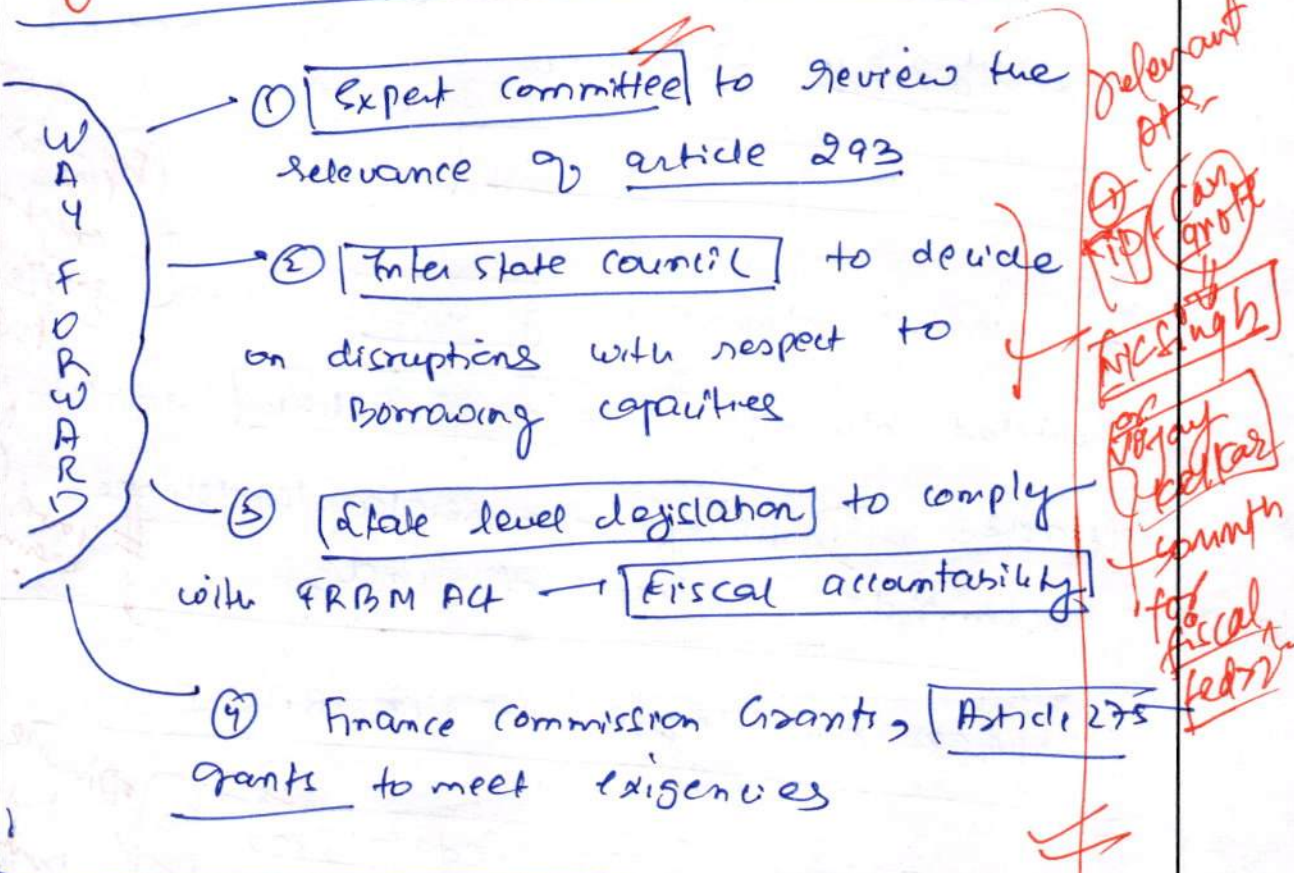 WAY FORWARD
① Expert Committee to review the
relevance of article 293
② Inter state council to decide
on disruptions with respect to
Borrowing capacities
③ State level legislation to comply
with FRBM Act → Fiscal accountability
④ Finance Commission Grants, Article 275
grants to meet exigencies
relevant
pts.
can
quote
NK Singh
or
Vijay
Kelkar
for
fiscal